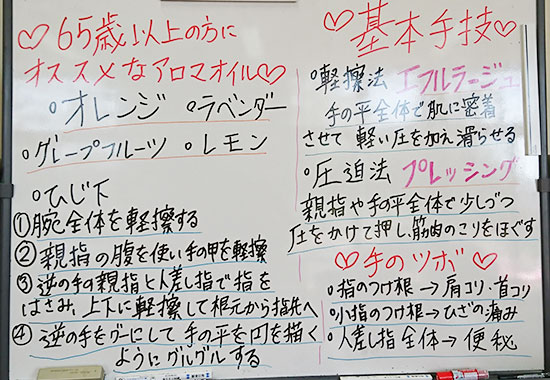 ♡65歳以上の方に
オススメなアロマオイル♡
○オレンジ ○ラベンダー
○グレープフルーツ ○レモン
○ひじ下
①腕全体を軽擦する
②親指の腹を使い手の甲を軽擦
③逆の手の親指と人差し指で指を
はさみ、上下に軽擦して根元から指先へ
④逆の手をグーにして手の平を円を描く
ようにグルグルする
♡基本手技♡
○軽擦法 エフルラージュ
手の平全体で肌に密着
させて軽い圧を加え滑らせる
○圧迫法 プレッシング
親指や手の平全体で少しづつ
圧をかけて押し、筋肉のこりをほぐす
♡手のツボ♡
○指のつけ根→肩コリ・首コリ
○小指のつけ根→ひざの痛み
○人差し指全体→便秘